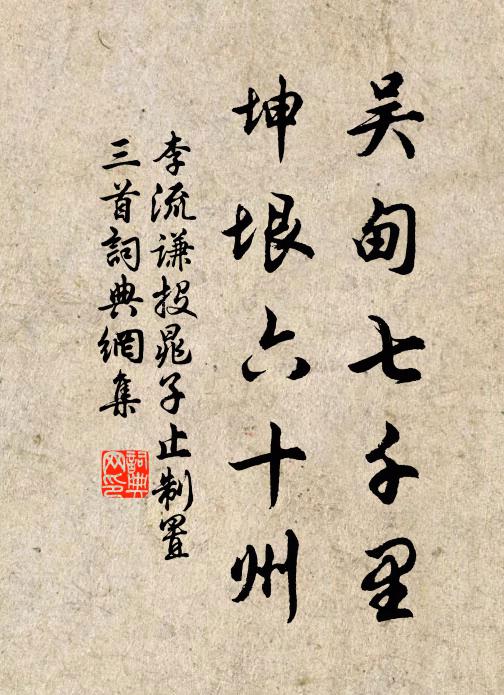 吴甸七千里
坤垠六十州
李流谦投晁子止制置
三首詞典網集
詞典網印